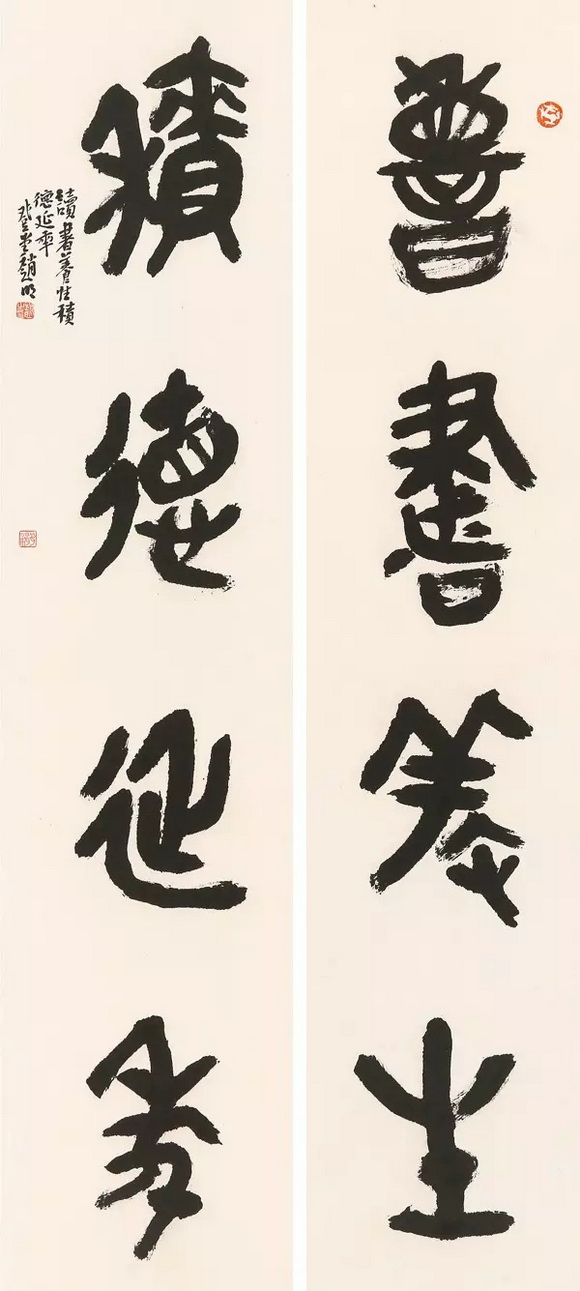 讀書養生
積德延年
讀書養性積
德延年
趙明